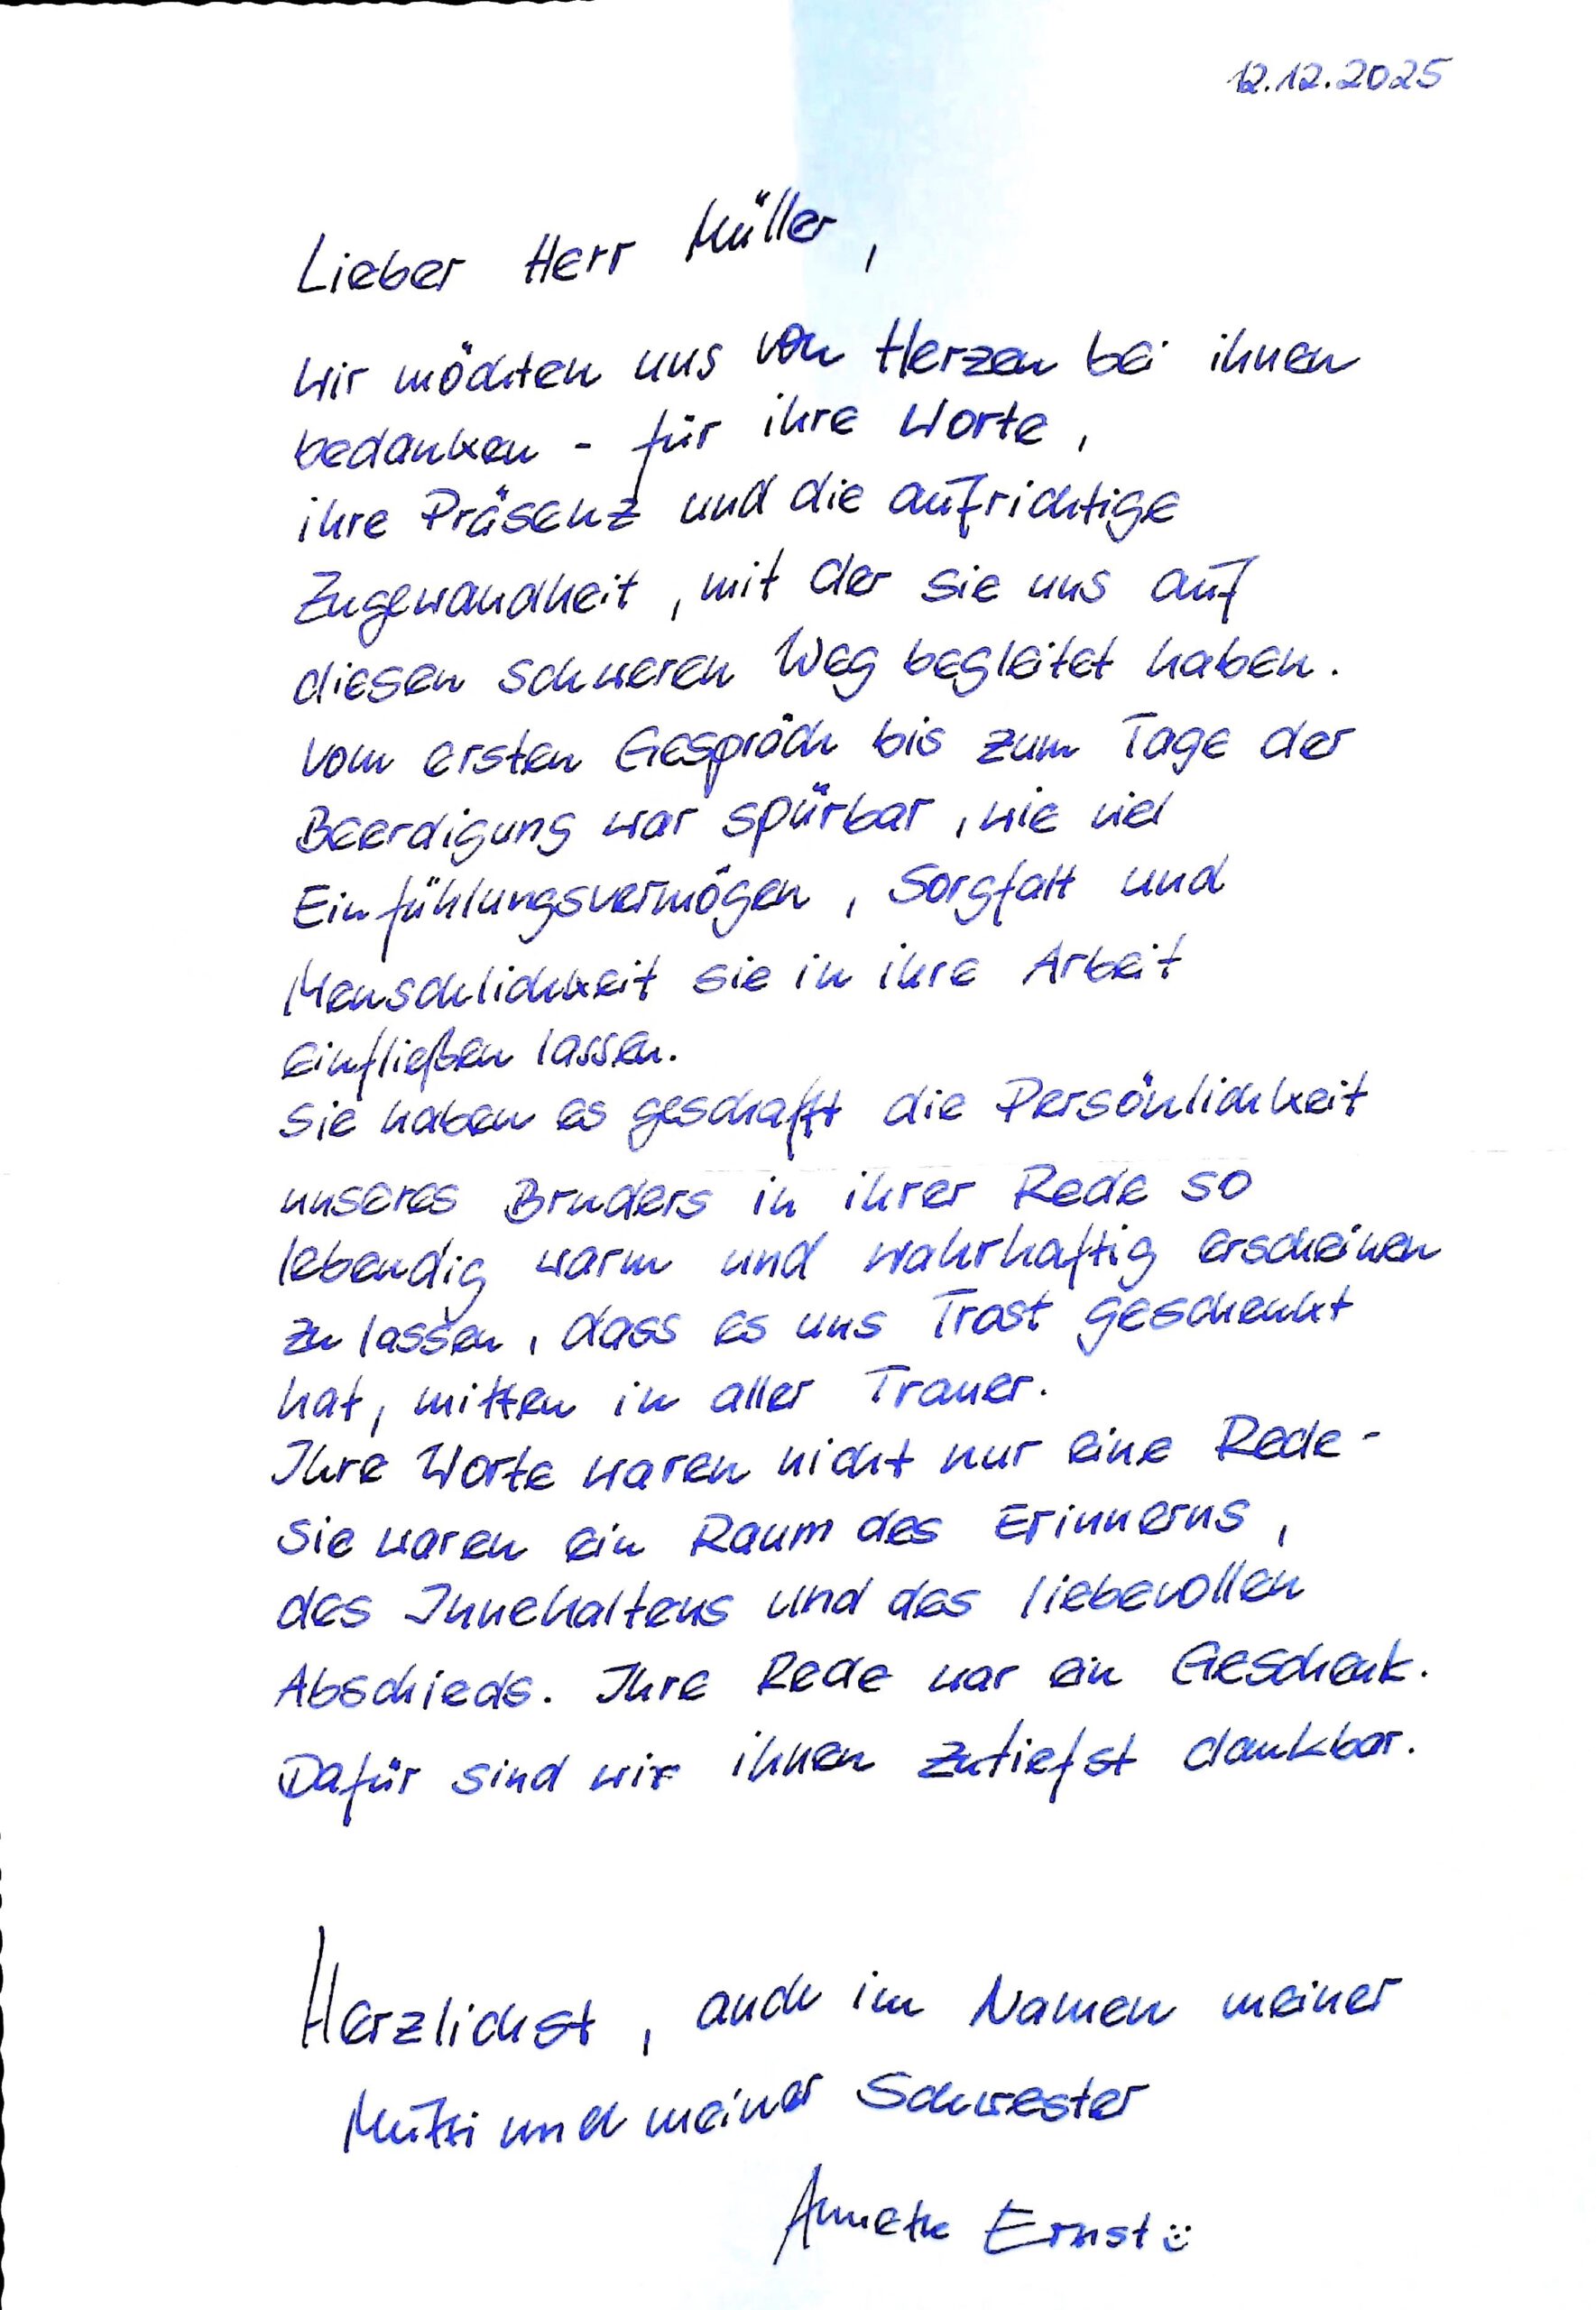 12.12.2025
Lieber Herr Müller,
wir möchten uns von Herzen bei ihnen
bedanken - für ihre Worte,
ihre Präsenz und die aufrichtige
Zugewandheit, mit der sie uns auf
diesen schweren Weg begleitet haben.
Vom ersten Gespräch bis zum Tage der
Beerdigung war spürbar, wie viel
Einfühlungsvermögen, Sorgfalt und
Menschlichkeit sie in ihre Arbeit
einfließen lassen.
Sie haben es geschafft die Persönlichkeit
unseres Bruders in ihrer Rede so
lebendig warm und wahrhaftig erscheinen
zu lassen, dass es uns Trost geschenkt
hat, mitten in aller Trauer.
Ihre Worte waren nicht nur eine Rede -
Sie waren ein Raum des Erinnerns,
des Innehaltens und des liebevollen
Abschieds. Ihre Rede war ein Geschenk.
Dafür sind wir ihnen zutiefst dankbar.
Herzlichst, auch im Namen meiner
Mutti und meiner Schwester
Annette Ernst :)